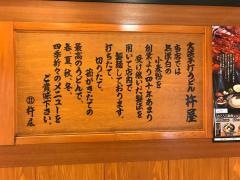 実演手打うどん 杵屋
当店では
小麦粉を
創業より四十年あまり
受け継いだ製法を
用いて店内で
製麺しております。
打ちたて、
切りたて、
茹がきたての
最高のうどんで、
春、夏、秋、冬、
四季折々のメニューを
ご賞味下さい。
杵屋